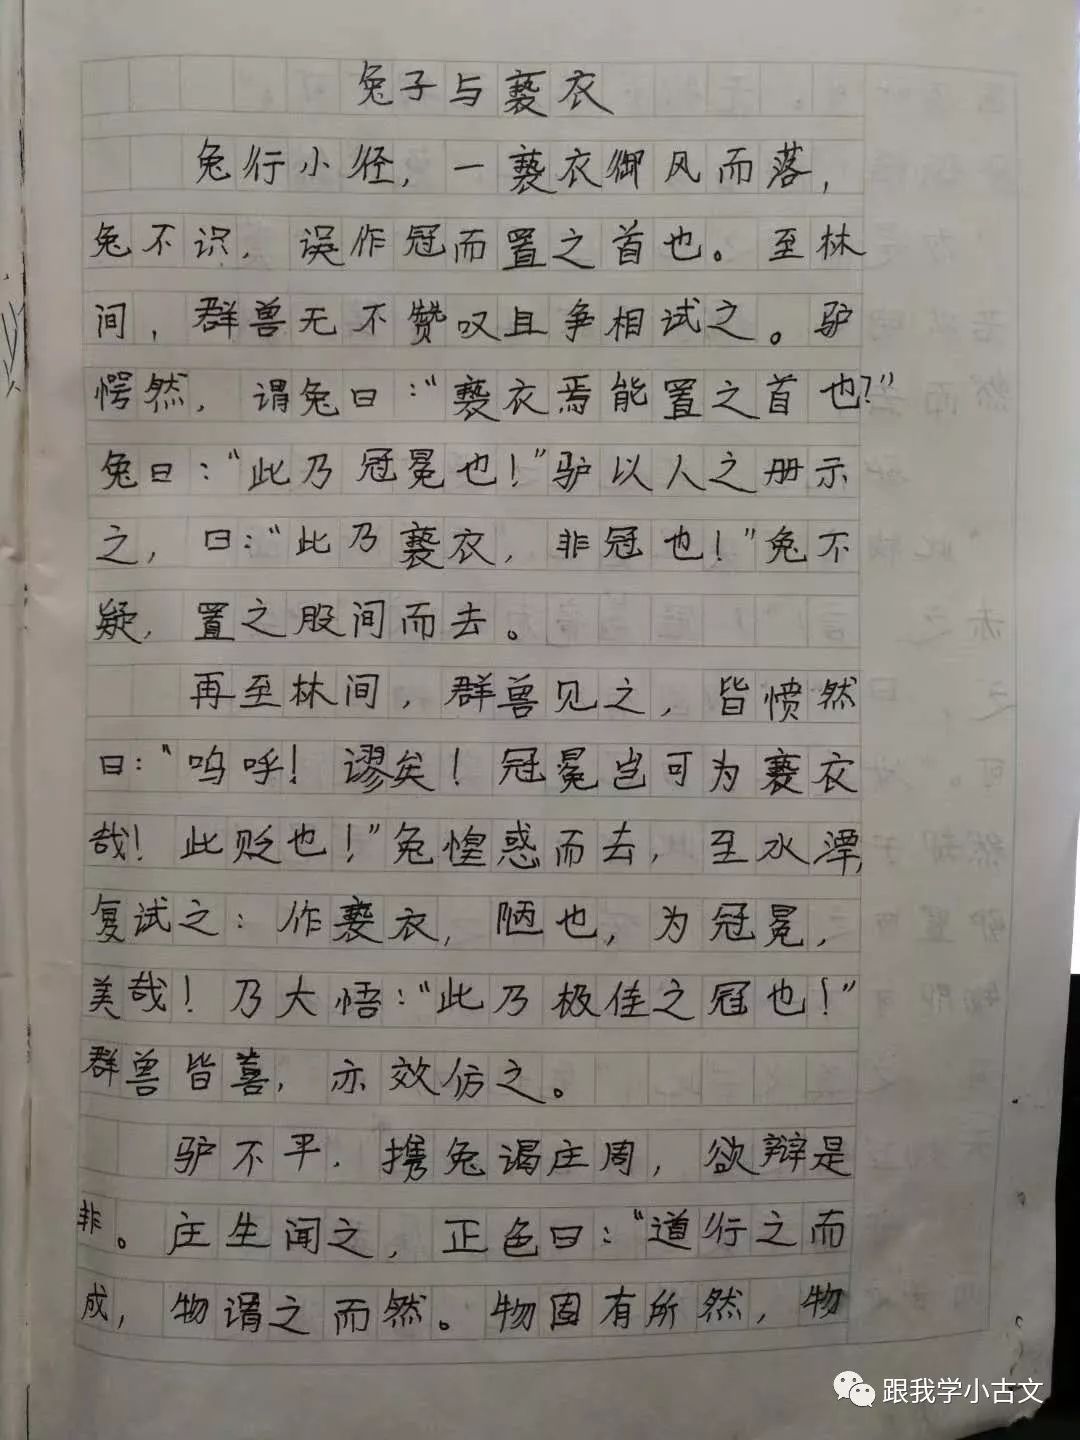 兔子与亵衣
兔行小径，一亵衣御风而落，
兔不识，误作冠而置之首也。至林
间，群兽无不赞叹且争相试之。驴
愕然，谓兔曰：“亵衣焉能置之首也？”
兔曰：“此乃冠冕也！”驴以人之册示
之，曰：“此乃亵衣，非冠也！”兔不
疑，置之股间而去。
再至林间，群兽见之，皆愤然
曰：“呜呼！谬矣！冠冕岂可为亵衣
哉！此贬也！”兔惶惑而去，至水潭，
复试之：作亵衣，陋也，为冠冕，
美哉！乃大悟：“此乃极佳之冠也！”
群兽皆喜，亦效仿之。
驴不平，携兔谒庄周，欲辩是
非。庄生闻之，正色曰：“道行之而
成，物谓之而然。物固有所然，物
跟我学小古文